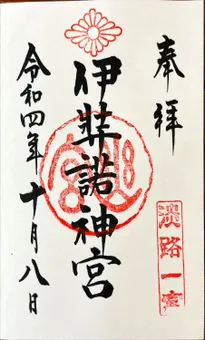 奉拝
伊弉諾神宮
淡路一宮
令和四年十月八日